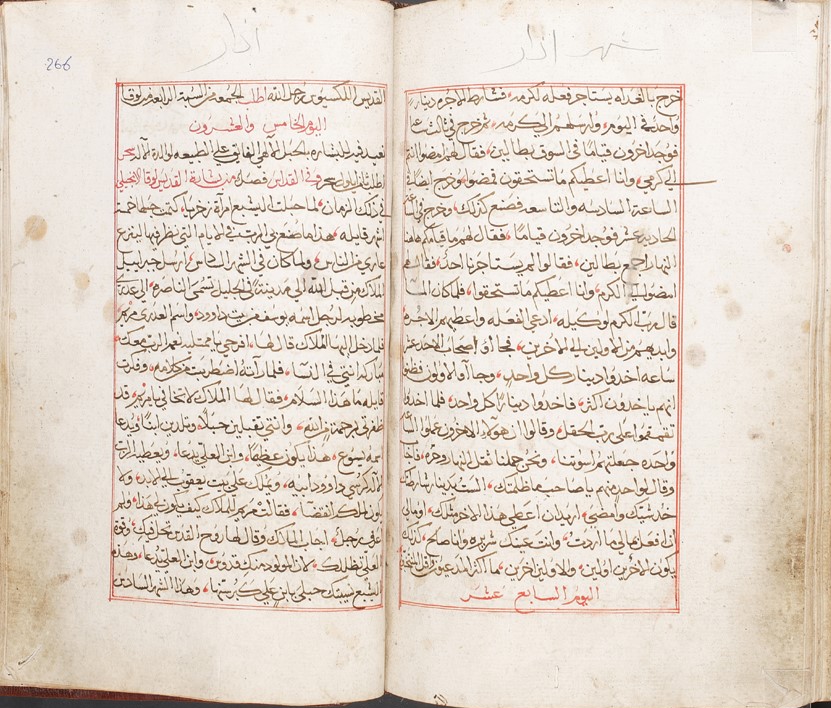 شهر اذار
خرج بالغداه يستاجر فعله لكرمه، فشارط الاجره دينار
واحد في اليوم، وارسلهم الي كرمه، ثم خرج في ثالث ساعه
فوجد اخرون قياما في السوق بطالين، فقال لهم امضوا انتم
الي كرمي، وانا اعطيكم ما تستحقون فمضوا، وخرج ايضا في
الساعة السادسه والتاسعه فصنع كذلك، وخرج في
الحاديه عشر فوجد اخرون قياما، فقال لهم ما قيامكم هاهنا
النهار اجمع بطالين، فقالوا لم يستاجرنا احد، فقال لهم
امضوا الي الكرم، وانا اعطيكم ما تستحقوا، فلما كان المسا
قال رب الكرم لوكيله، ادعي الفعله واعطهم الاجره،
وابد بهم من الاولين الي الاخرين، فجاوا اصحاب الاحد عشر
ساعه اخدوا دينار كل واحد، وجاوا الاولون فظنوا
انهم ياخدون اكثر، فاخدوا دينار كل واحد، فلما اخدوا
تقمقموا علي رب الحقل، وقالوا ان هولاء الاخرون عملوا ساعه
واحده جعلتهم اسوتنا، ونحن حملنا ثقل النهار وحره، فاجاب
وقال لواحد منهم ياصاحب ما ظلمتك، الست بدينار شارطتك
خد شيتك وامضي، اريد ان اعطي هذا الاخر مثلك، او مالي
ان افعل بمالي ما اردت، وانت عينك شريره وانا صالح، كذلك
يكون الاخرين اولين، والاولين اخرين، ما اكثر المدعيون واقل المنتخبين
اليوم السابع عشر
اذار
266
القديس الكسيوس رجل الله اطلب الجمعه من السبة الرابعه من لوقا
اليوم الخامس والعشرون
نعيد فيه للبشاره بالحبل الالهي الفايق علي الطبيعه لوالدة الاله
فصلا من بشاره القديس لوقا الانجيلي
في ذلك الزمان، لما حبلت اليشبع امراة زخريا، كتمت حبلها خمسة
اشهر قايله، هذا ما صنع بي الرب في الايام التي نظر فيها لينزع
عاري من الناس، ولما كان في الشهر السادس، ارسل جبراييل
الملاك من قبل الله الي مدينة في الجليل تسمي الناصره، الي عدري
مخطوبه لرجل اسمه يوسف من بيت داوود، واسم العدري مريم،
فلما دخل اليها الملاك قال لها، افرحي يا ممتليه نعمه الرب معك،
مباركه انتي في النسا، فلما راته اضطربت من كلامه، وفكرت
قايله ما هذا السلام، فقال لها الملاك لا تخافي يا مريم، قد
ظفرتي برحمة من الله، وانتي تقبلين حبلا، وتلدين ابنا ويدعا
اسمه ايسوع، هذا يكون عظيما، وابن العلي يدعا، ويعطيه الرب
الاله كرسي داوود ابيه، ويملك علي بيت يعقوب الي الابد، ولا
يكون لملكه انقضا، فقالت مريم للملاك كيف يكون لي هذا، ولم
اعرف رجل، اجاب الملاك وقال لها روح القدس تحل فيك، وقوة
العلي تظللك، لان المولود منك قدوس، وابن العلي يدعا، وهذه
اليشبع نسيبتك حبلي بابن علي كبر سنها، وهذا الشهر السادس